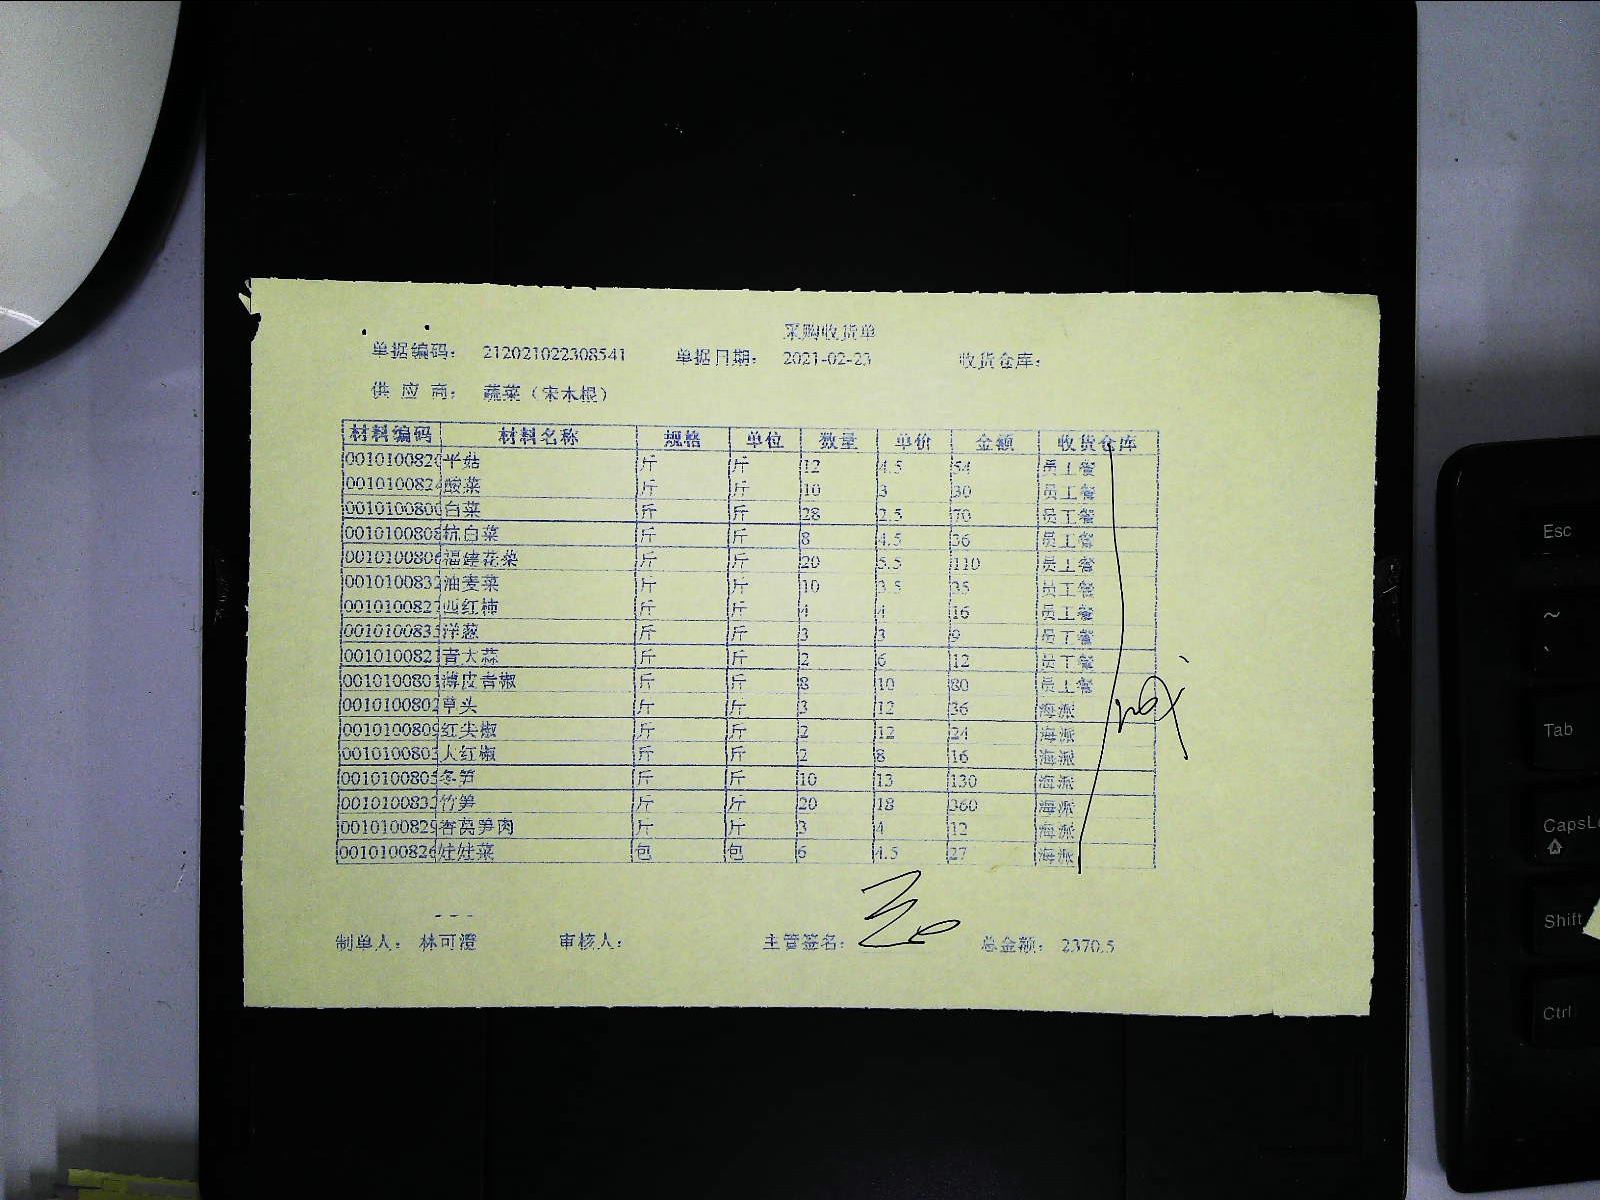 采购收货单
单据编码： 212021022308541 单据日期： 2021-02-23 收货仓库：
供 应 商： 蔬菜（宋木根）
材料编码 材料名称 规格 单位 数量 单价 金额 收货仓库
0010100820 平菇 斤 斤 12 4.5 54 员工餐
0010100824 酸菜 斤 斤 10 3 30 员工餐
0010100800 白菜 斤 斤 28 2.5 70 员工餐
0010100808 杭白菜 斤 斤 8 4.5 36 员工餐
0010100806 福建花菜 斤 斤 20 5.5 110 员工餐
0010100832 油麦菜 斤 斤 10 3.5 35 员工餐
0010100827 西红柿 斤 斤 4 4 16 员工餐
001010083 洋葱 斤 斤 3 3 9 员工餐
0010100821 青大蒜 斤 斤 2 6 12 员工餐
0010100801 薄皮青椒 斤 斤 8 10 80 员工餐
0010100802 草头 斤 斤 3 12 36 海派
0010100809 红尖椒 斤 斤 2 12 24 海派
0010100803 大红椒 斤 斤 2 8 16 海派
0010100805 冬笋 斤 斤 10 13 130 海派
001010083 竹笋 斤 斤 20 18 360 海派
0010100829 香莴笋肉 斤 斤 3 4 12 海派
0010100826 娃娃菜 包 包 6 4.5 27 海派
制单人： 林可澄 审核人： 主管签名： 总金额： 2370.5
Esc
~
`
Tab
CapsLo
Shift
Ctrl